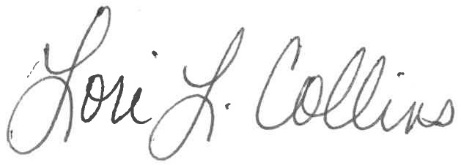 Lori L. Collins